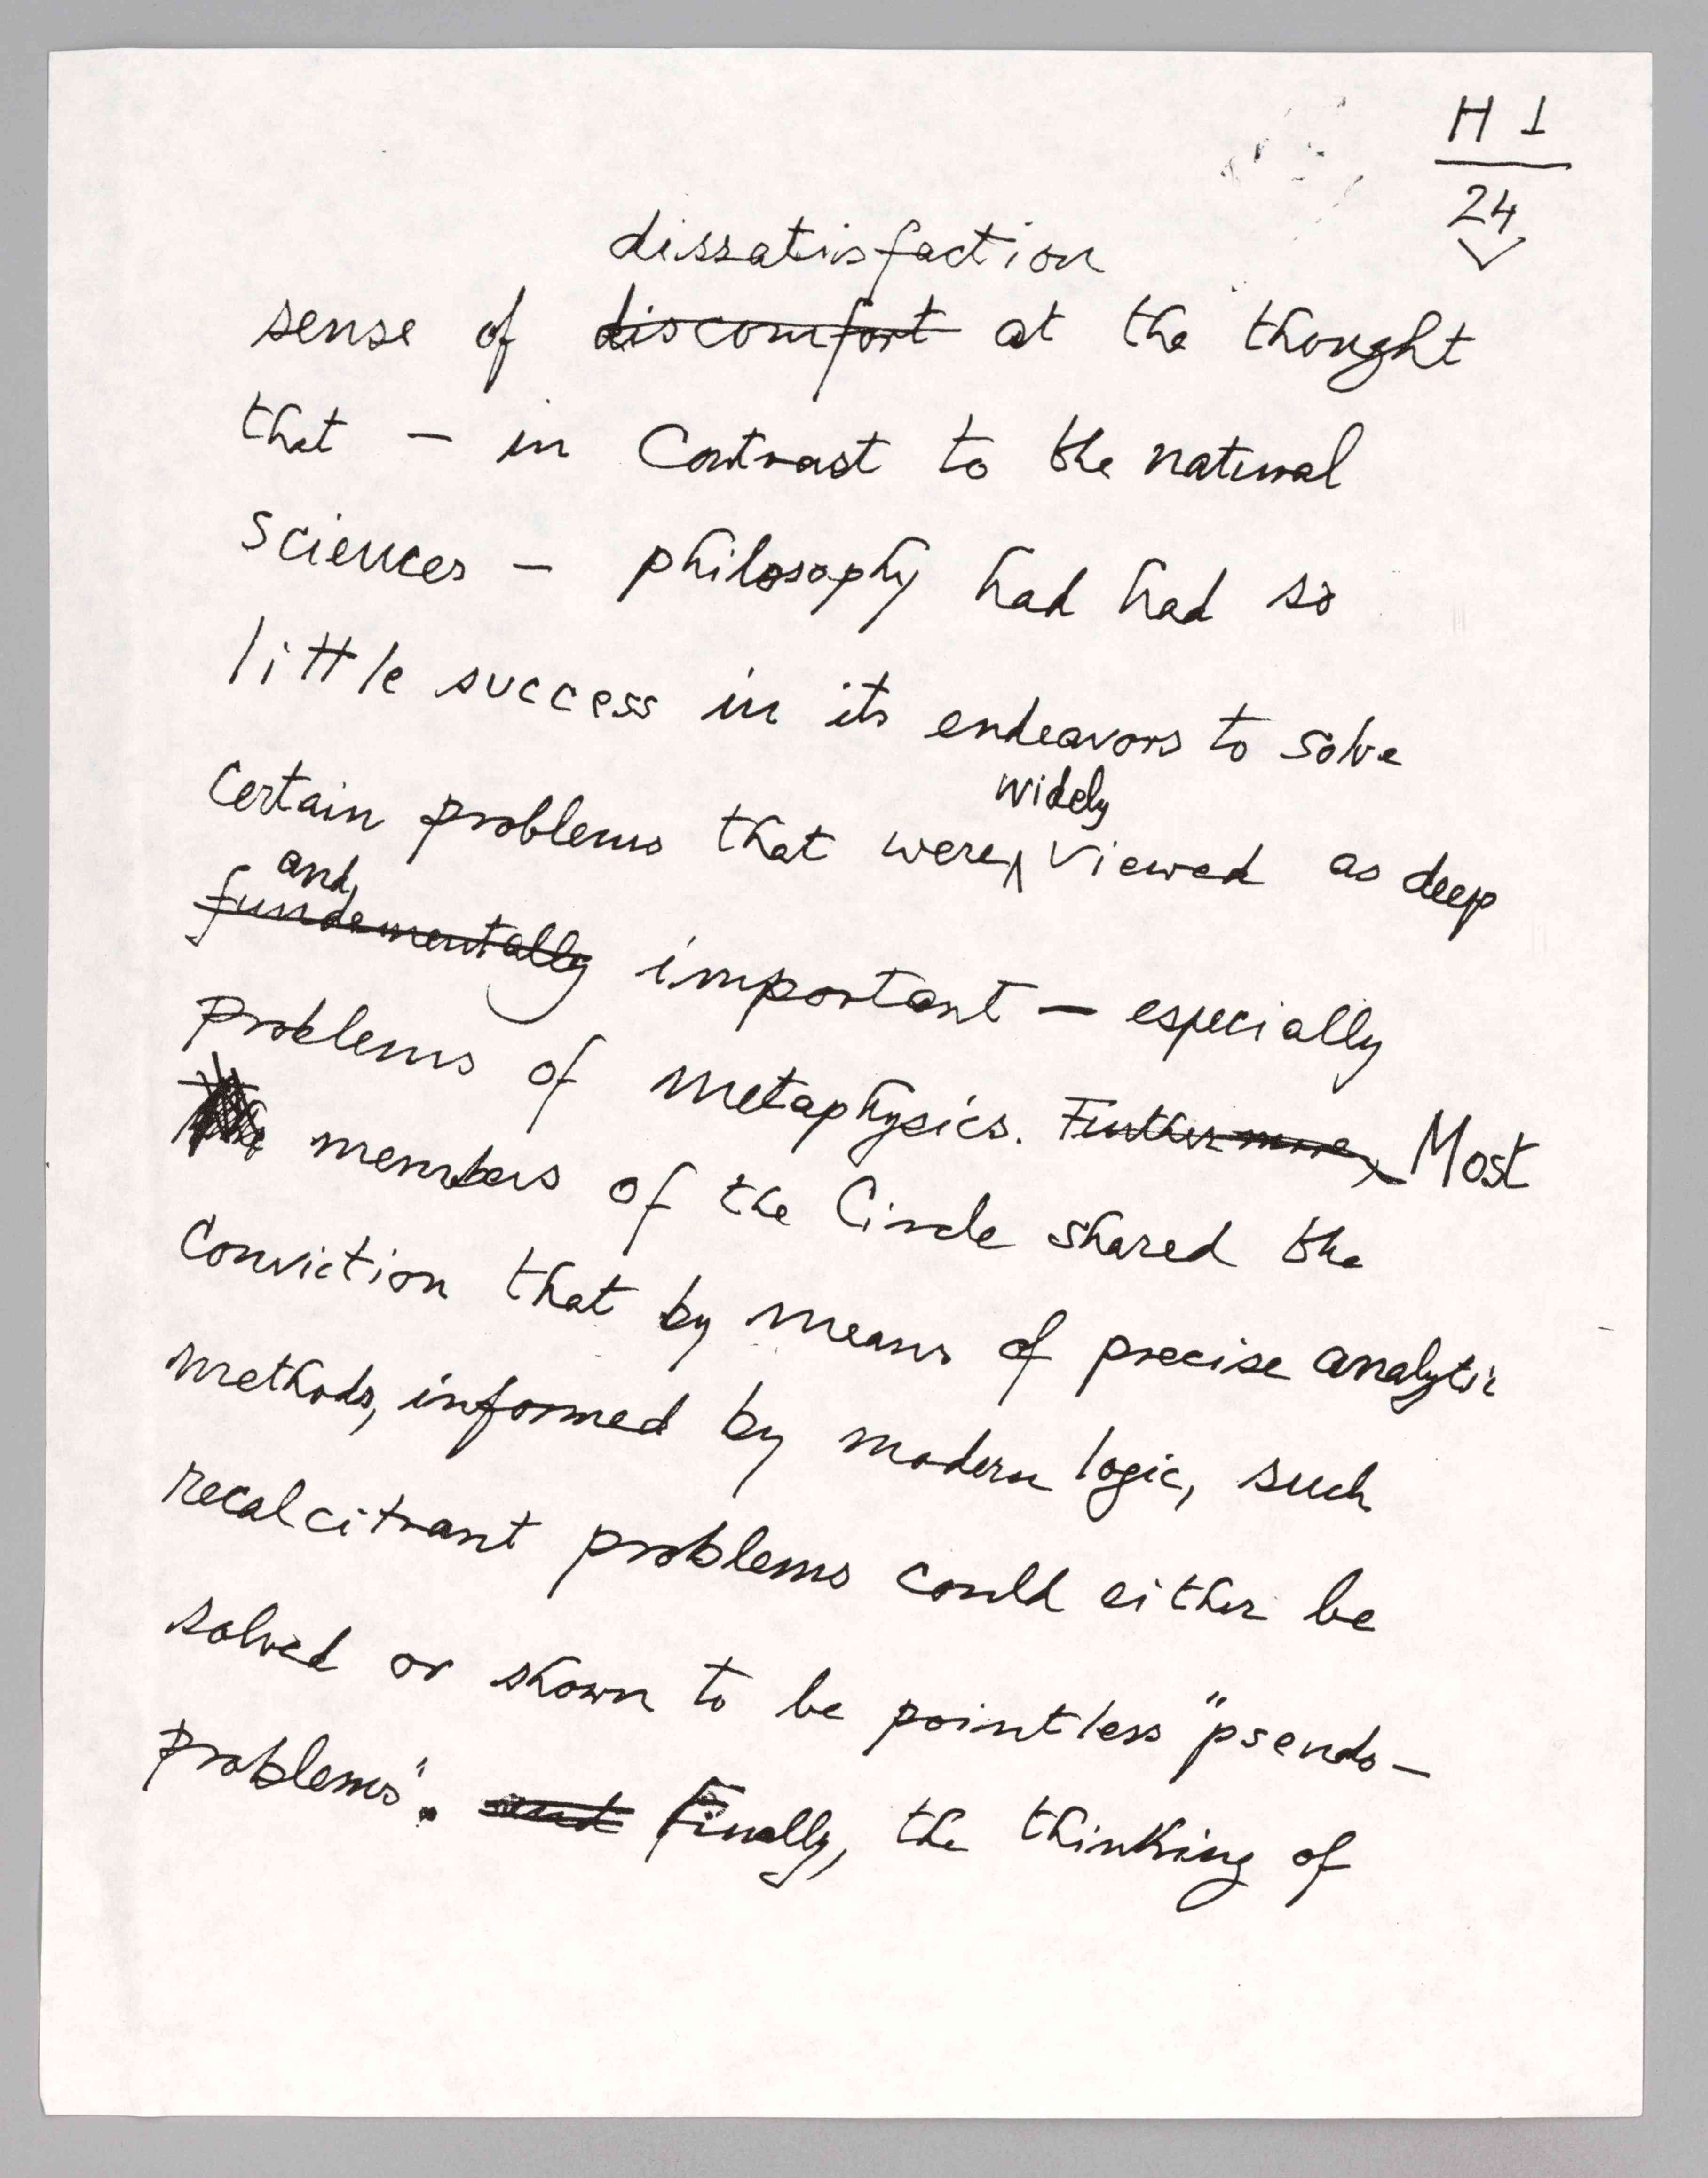 H 1
24
dissatisfaction
sense of discomfort at the thought
that – in Contrast to the natural
sciences – philosophy had had so
little success in its endeavors to solve
widely
Certain problems that were viewed as deep
and
fundamentally important – especially
problems of metaphysics. Furthermore, Most
members of the Circle shared the
Conviction that by means of precise analytic
methods, informed by modern logic, such
recalcitrant problems could either be
solved or shown to be pointless "pseudo–
problems". and Finally, the thinking of